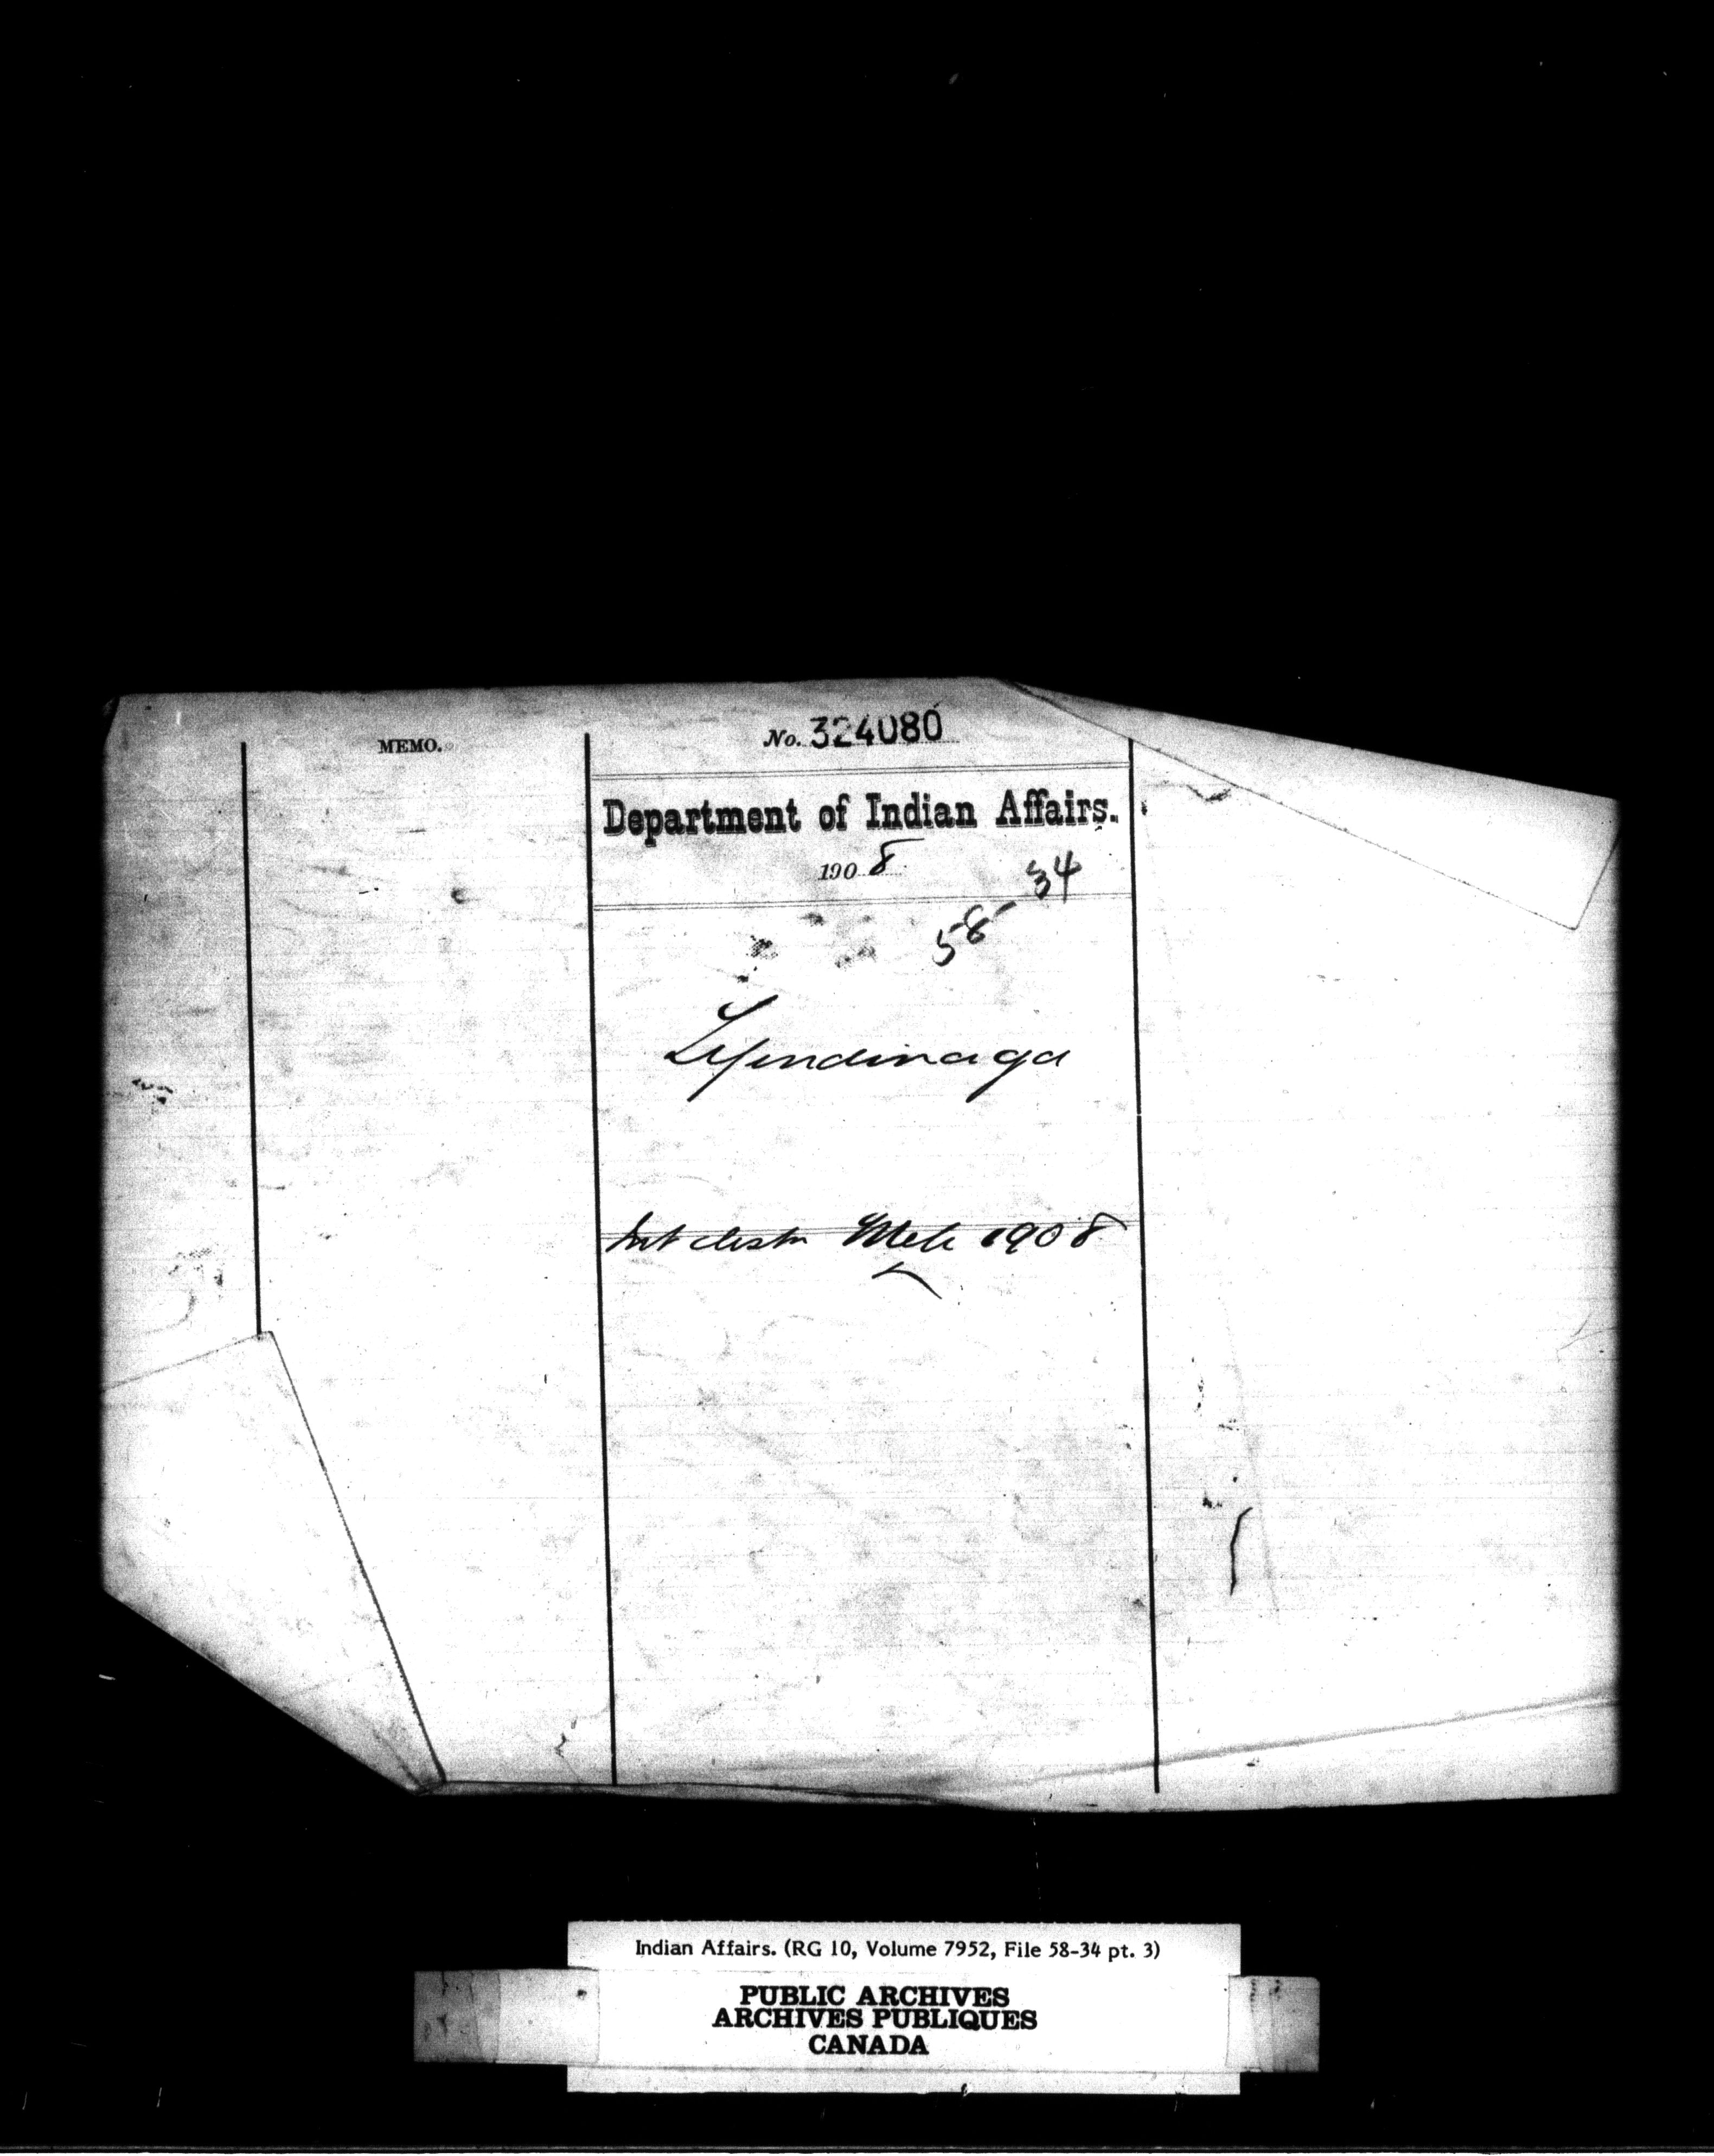 MEMO.
No. 324080
Department of Indian Affairs.
1908
58-34
Tyendinaga
Int distn Mch 1908
Indian Affairs. (RG 10, Volume 7952, File 58-34 pt. 3)
PUBLIC ARCHIVES
ARCHIVES PUBLIQUES
CANADA